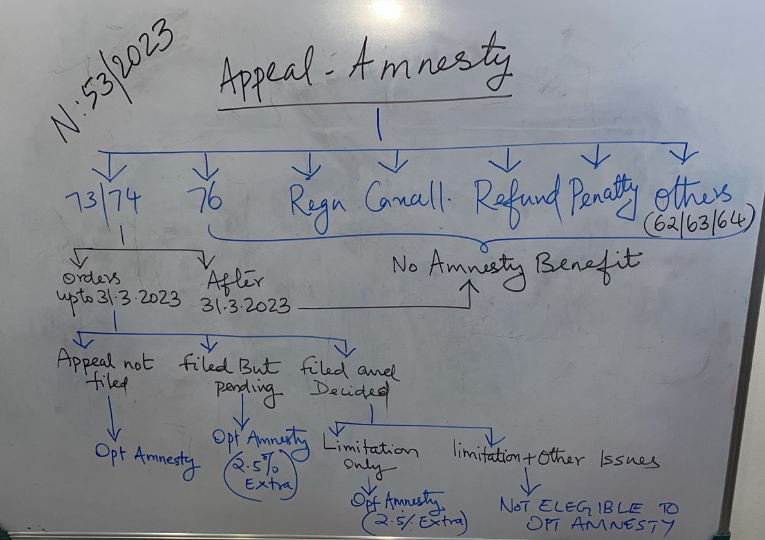 N: 53/2023
Appeal - Amnesty
73/74 76 Regn Cancell. Refund Penalty Others
(62/63/64)
No Amnesty Benefit
Orders
upto 31.3.2023
After
31.3.2023
Appeal not
filed
filed But
pending
filed and
Decided
Opt Amnesty
Opt Amnesty
(2.5%
Extra)
Limitation
only
limitation + Other Issues
Opt Amnesty
(2.5% Extra)
NOT ELEGIBLE TO
OPT AMNESTY